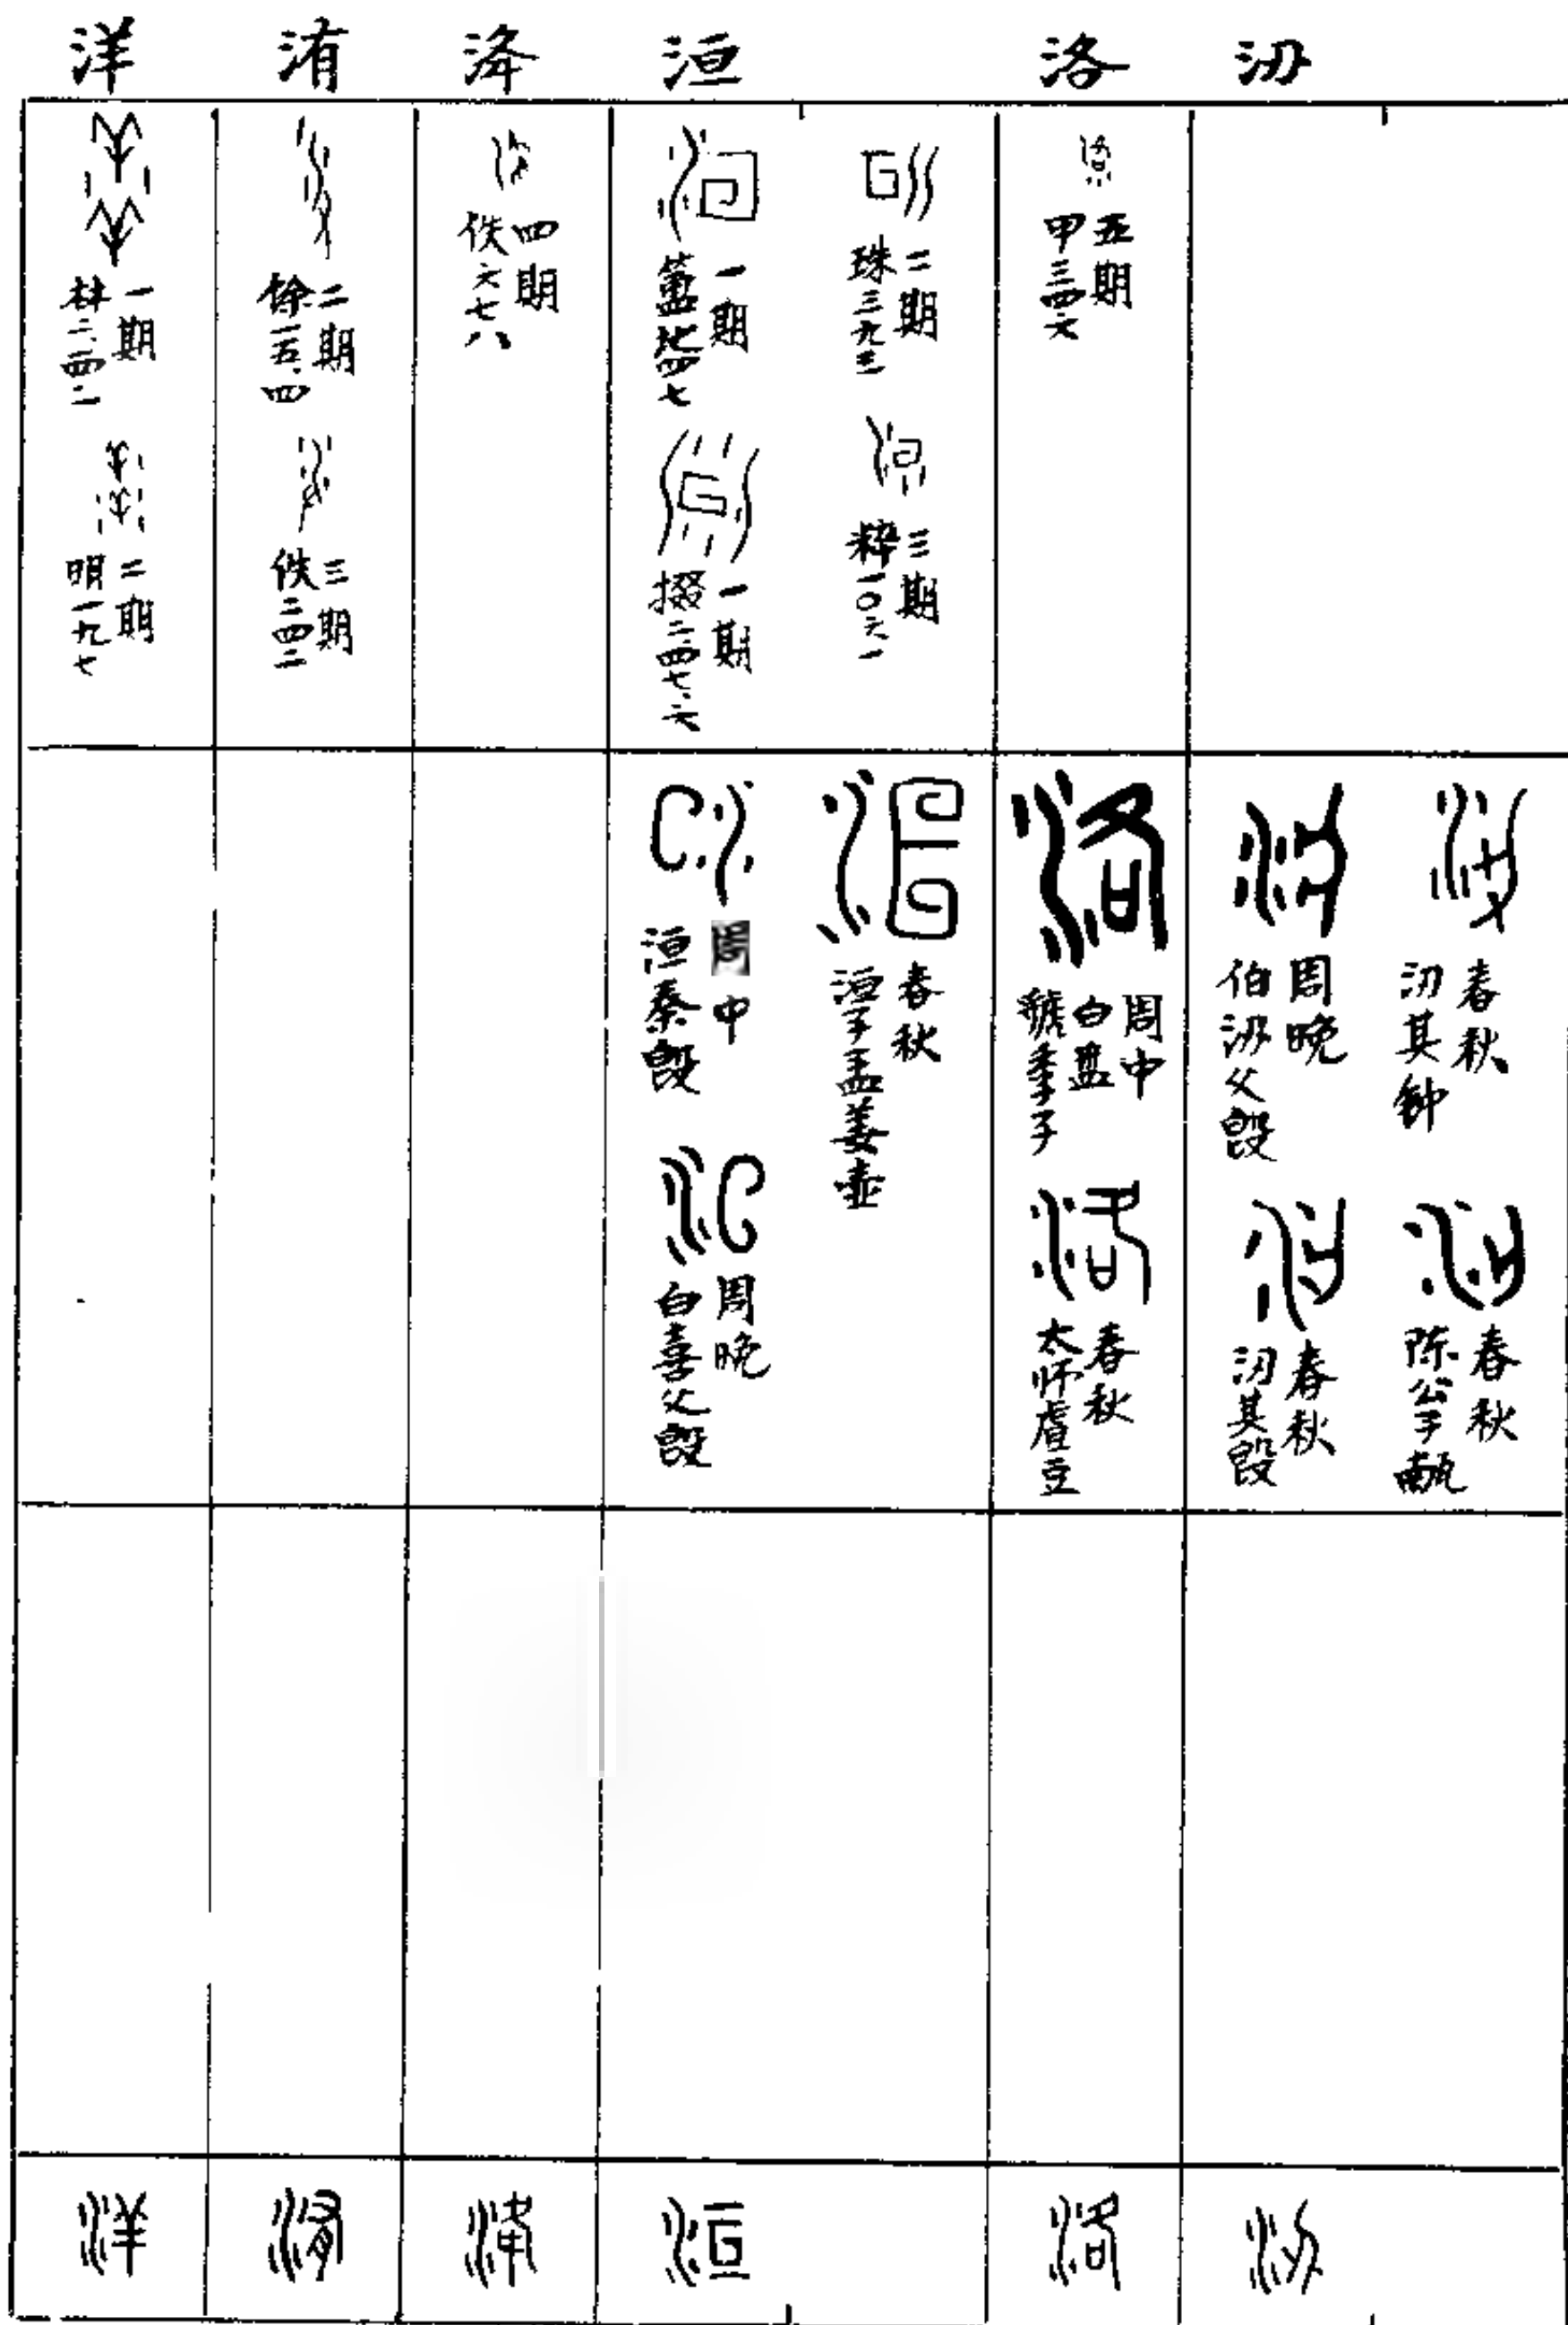 洋 洧 洚 洹 洛 汈
一期
林二·二四·二
二期
明一九七
二期
馀一五·四
三期
佚二四二
四期
佚六七八
一期
簠地四七
一期
掇二·四七六
二期
珠三九三
三期
粹一〇六一
五期
甲三四六
周中
洹秦𣪘
周晚
白喜父𣪘
春秋
洹子孟姜壶
周中
虢季子
白盘
春秋
太师虘豆
周晚
伯汈父𣪘
春秋
汈其𣪘
春秋
汈其钟
春秋
陈公子甗
洋 洧 洚 洹 洛 汈